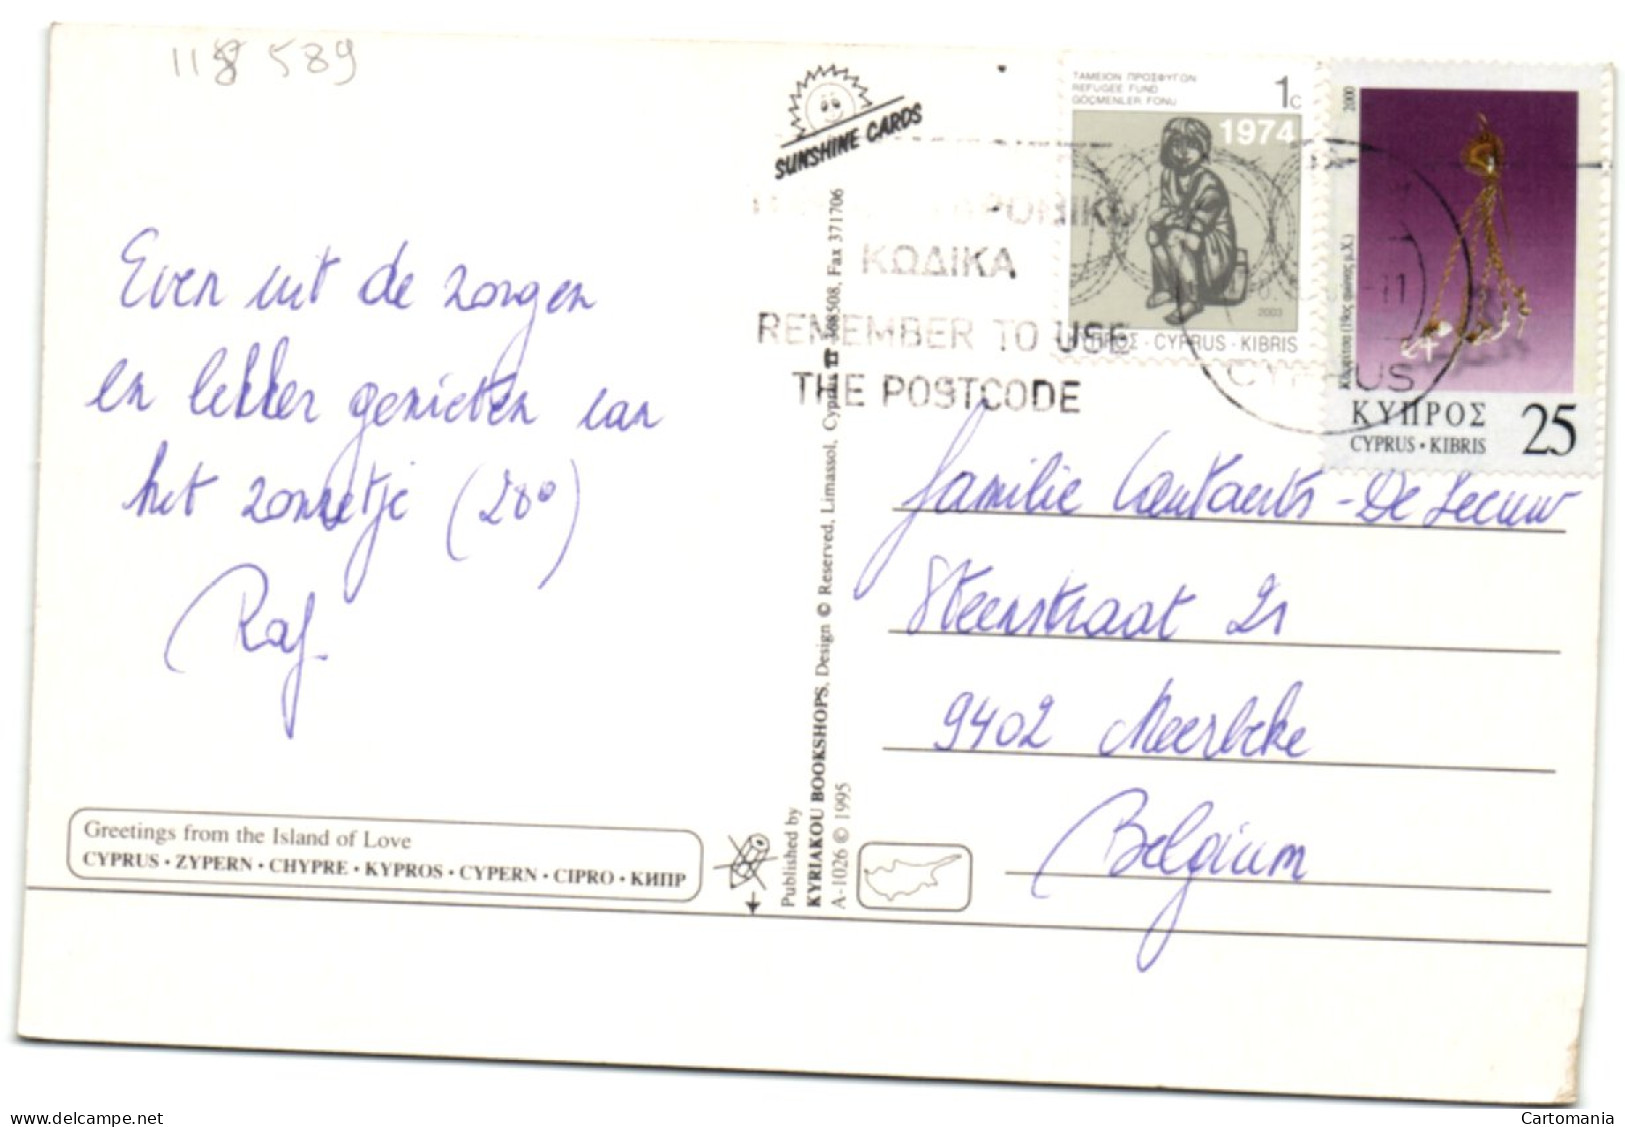 118 589
SUNSHINE CARDS
ΤΑΜΕΙΟΝ ΠΡΟΣΦΥΓΩΝ
REFUGEE FUND
GÖÇMENLER FONU
1c
1974
2003
ΚΥΠΡΟΣ · CYPRUS · KIBRIS
2000
ΚΥΠΡΟΣ
CYPRUS • KIBRIS
25
ΚΩΔΙΚΑ
REMEMBER TO USE
THE POSTCODE
CYPRUS
Even uit de zorgen
en lekker genieten van
het zonnetje (28°)
Raf.
Familie Cantaerts - De Leeuw
Steenstraat 21
9402 Meerbeke
Belgium
Published by
KYRIAKOU BOOKSHOPS, Design © Reserved, Limassol, Cyprus ☎ 368508, Fax 371706
A-1026 © 1995
Greetings from the Island of Love
CYPRUS • ZYPERN • CHYPRE • KYPROS • CYPERN • CIPRO • КИПР
delcampe.net
Cartomania